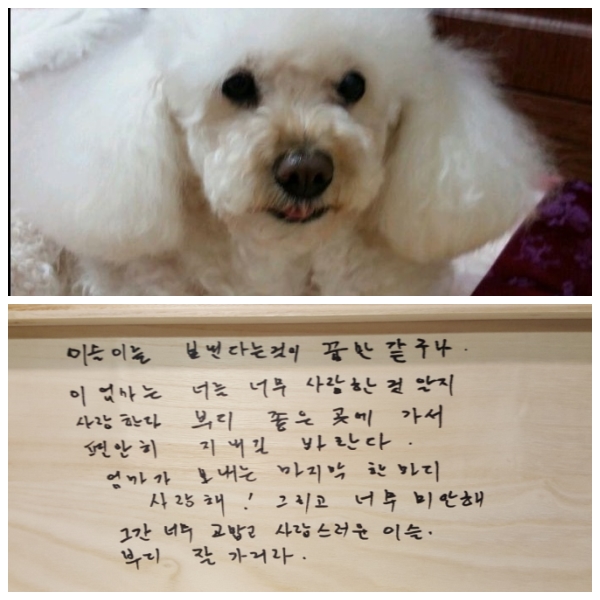 이슬이를 보낸다는것이 꿈만 같구나.
이 엄마는 너를 너무 사랑한 것 알지
사랑한다 부디 좋은 곳에 가서
편안히 지내길 바란다.
엄마가 보내는 마지막 한마디
사랑해! 그리고 너무 미안해
그간 너무 고맙고 사랑스러운 이슬.
부디 잘 가거라.